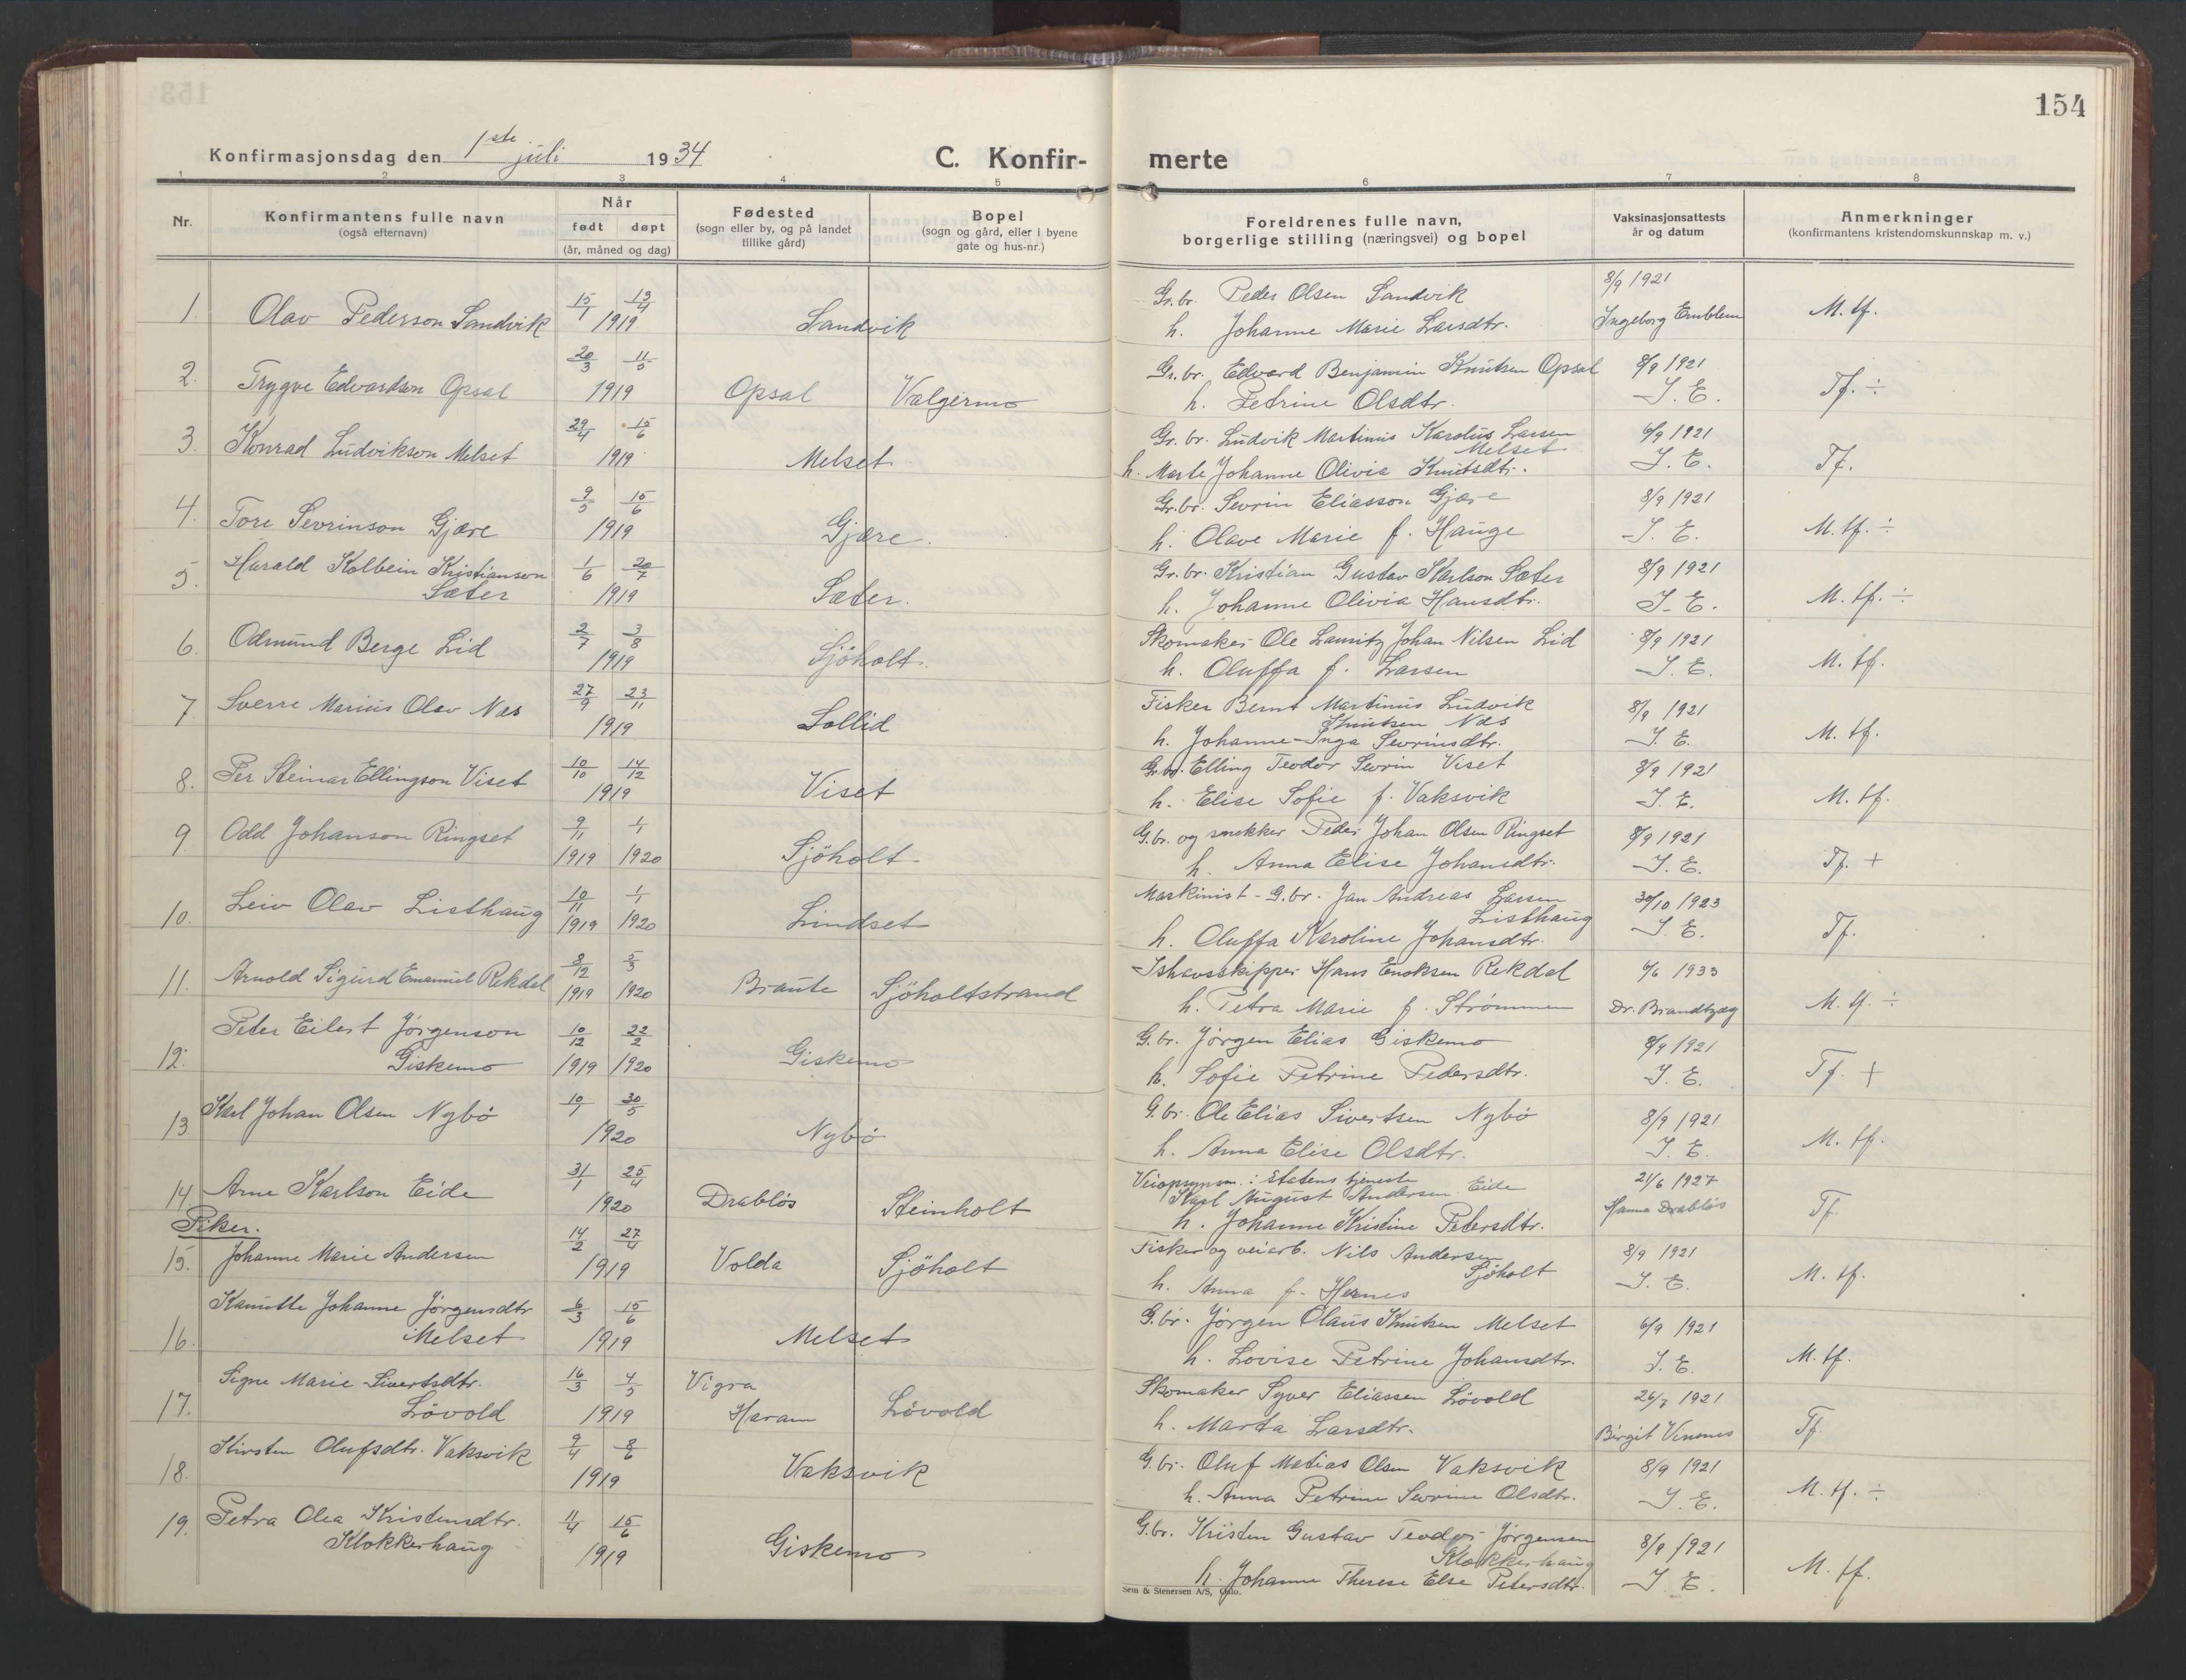 154
Konfirmasjonsdag den 1ste juli 1934
C. Konfir- merte
1 2 3 4 5 6 7 8
Nr.
Konfirmantens fulle navn
(også efternavn)
Når
født døpt
(år, måned og dag)
Fødested
(sogn eller by, og på landet
tillike gård)
Bopel
(sogn og gård, eller i byene
gate og hus-nr.)
Foreldrenes fulle navn,
borgerlige stilling (næringsvei) og bopel
Vaksinasjonsattests
år og datum
Anmerkninger
(konfirmantens kristendomskunnskap m. v.)
1. Olav Pederson Sandvik 15/1 13/4 1919 Sandvik
Gr. br. Peder Olsen Sandvik 8/9 1921
h. Johanne Marie Larsdtr. Ingeborg Emblem M. tf.
2. Trygve Edvardson Opsal 20/3 11/5 1919 Opsal Valgermo
Gr. br. Edvard Benjamin Knutsen Opsal 8/9 1921
h. Petrine Olsdtr. I. E. Tf. ÷
3. Konrad Ludvikson Melset 29/4 15/6 1919 Melset
Gr. br. Ludvik Martinus Karolus Larsen 6/9 1921
Melset
h. Marte Johanne Olivia Knutsdtr. I. E. Tf.
4. Tore Sevrinson Gjære 9/5 15/6 1919 Gjære.
Gr. br. Sevrin Eliasson Gjære 8/9 1921
h. Olave Marie f. Hauge I. E. M. tf. ÷
5. Harald Kolbein Kristianson
Sæter 1/6 20/7 1919 Sæter.
Gr. br. Kristian Gustav Karlson Sæter 8/9 1921
h. Johanne Olivia Hansdtr. I. E. M. tf. ÷
6. Odmund Berge Lid 2/7 3/8 1919 Sjöholt.
Skomaker Ole Lauritz Johan Nilsen Lid 8/9 1921
h. Oluffa f. Larsen I. E. M. tf.
7. Sverre Marius Olav Nes 27/9 23/11 1919 Sollid
Fisker Bernt Martinus Ludvik 8/9 1921
Knutsen Nes
h. Johanne-Inga Sevrinsdtr. I. E. M. tf.
8. Per Steinar Ellingson Viset 10/10 14/12 1919 Viset
Gr. br. Elling Teodor Sevrin Viset 8/9 1921
h. Elise Sofie f. Vaksvik I. E. M. tf.
9 Odd Johanson Ringset 9/11 1/1 1919 1920 Sjöholt
G. br. og snekker Peder Johan Olsen Ringset 8/9 1921
h. Anna Elise Johansdtr. I. E. Tf. +
10. Leiv Olav Listhaug 10/11 1/1 1919 1920 Lindset
Maskinist - G. br. Jan Andreas Larsen 30/10 1923
Listhaug
h. Oluffa Karoline Johansdtr. I. E. Tf.
11. Arnold Sigurd Emanuel Rekdal 8/12 5/3 1919 1920 Braute Sjöholtstrand
Ishavsskipper Hans Enoksen Rekdal 6/6 1933
h. Petra Marie f. Strømmen Dr. Brandtzæg M. tf. ÷
12. Peter Eilert Jörgenson
Giskemo 10/12 22/2 1919 1920 Giskemo
G. br. Jörgen Elias Giskemo 8/9 1921
h. Sofie Petrine Pedersdtr. I. E. Tf. +
13 Karl Johan Olsen Nybö 10/1 30/5 1920 Nybö
G. br. Ole Elias Sivertsen Nybö 8/9 1921
h. Anna Elise Olsdtr. I. E. M. tf.
14 Arne Karlson Eide 31/1 25/4 1920 Drabløs Steinholt
Veiopsynsm. i statens tjeneste 21/6 1927
Karl August Andersen Eide
h. Johanne Kristine Petersdtr. Hanna Drabløs Tf.
Piker.
15. Johanne Marie Andersen 14/2 27/4 1919 Volda Sjöholt
Fisker og veiarb. Nils Andersen 8/9 1921
Sjöholt
h. Anna f. Hernes I. E. M. tf.
16. Kamille Johanne Jörgensdtr
Melset 6/3 15/6 1919 Melset
G. br. Jörgen Olaus Knutsen Melset 6/9 1921
h. Lovise Petrine Johansdtr. I. E. M. tf.
17. Signe Marie Sivertsdtr.
Lövold 16/3 4/5 1919 Vigra
Haram Lövold
Skomaker Syver Eliassen Lövold 26/7 1921
h. Marta Larsdtr. Birgit Vinnes Tf.
18. Kirsten Olufsdtr. Vaksvik 9/4 8/6 1919 Vaksvik
G. br. Oluf Matias Olsen Vaksvik 8/9 1921
h. Anna Petrine Sevrine Olsdtr. I. E. M. tf. ÷
19. Petra Olea Kristensdtr.
Klokkerhaug 11/4 15/6 1919 Giskemo
G. br. Kristen Gustav Teodor Jörgensen 8/9 1921
Klokkerhaug
h. Johanne Therese Else Petersdtr. I. E. M. tf.
Sem & Stenersen A/S, Oslo.